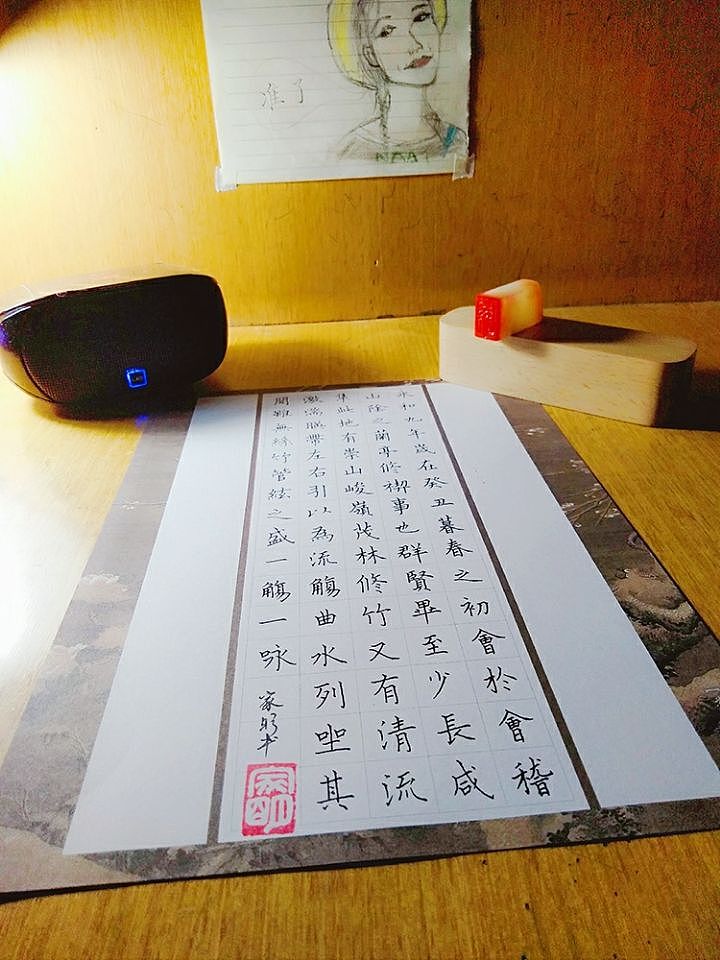 准了
永和九年歲在癸丑暮春之初會於會稽
山陰之蘭亭修禊事也群賢畢至少長咸
集此地有崇山峻嶺茂林修竹又有清流
激湍帶左右引以為流觴曲水列坐其
間雖無絲竹管絃之盛一觴一咏
家明书
家明